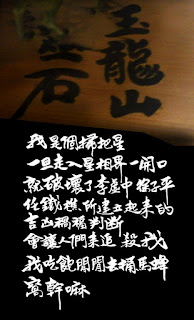 玉龍山
石
我是個掃把星
一旦走入星相界一開口
就破壞了李虛中徐子平
任鐵樵所建立起來的
吉凶禍福判断
會讓人們来追殺我
我吃飽閒閒去桶馬蜂
窩幹嘛